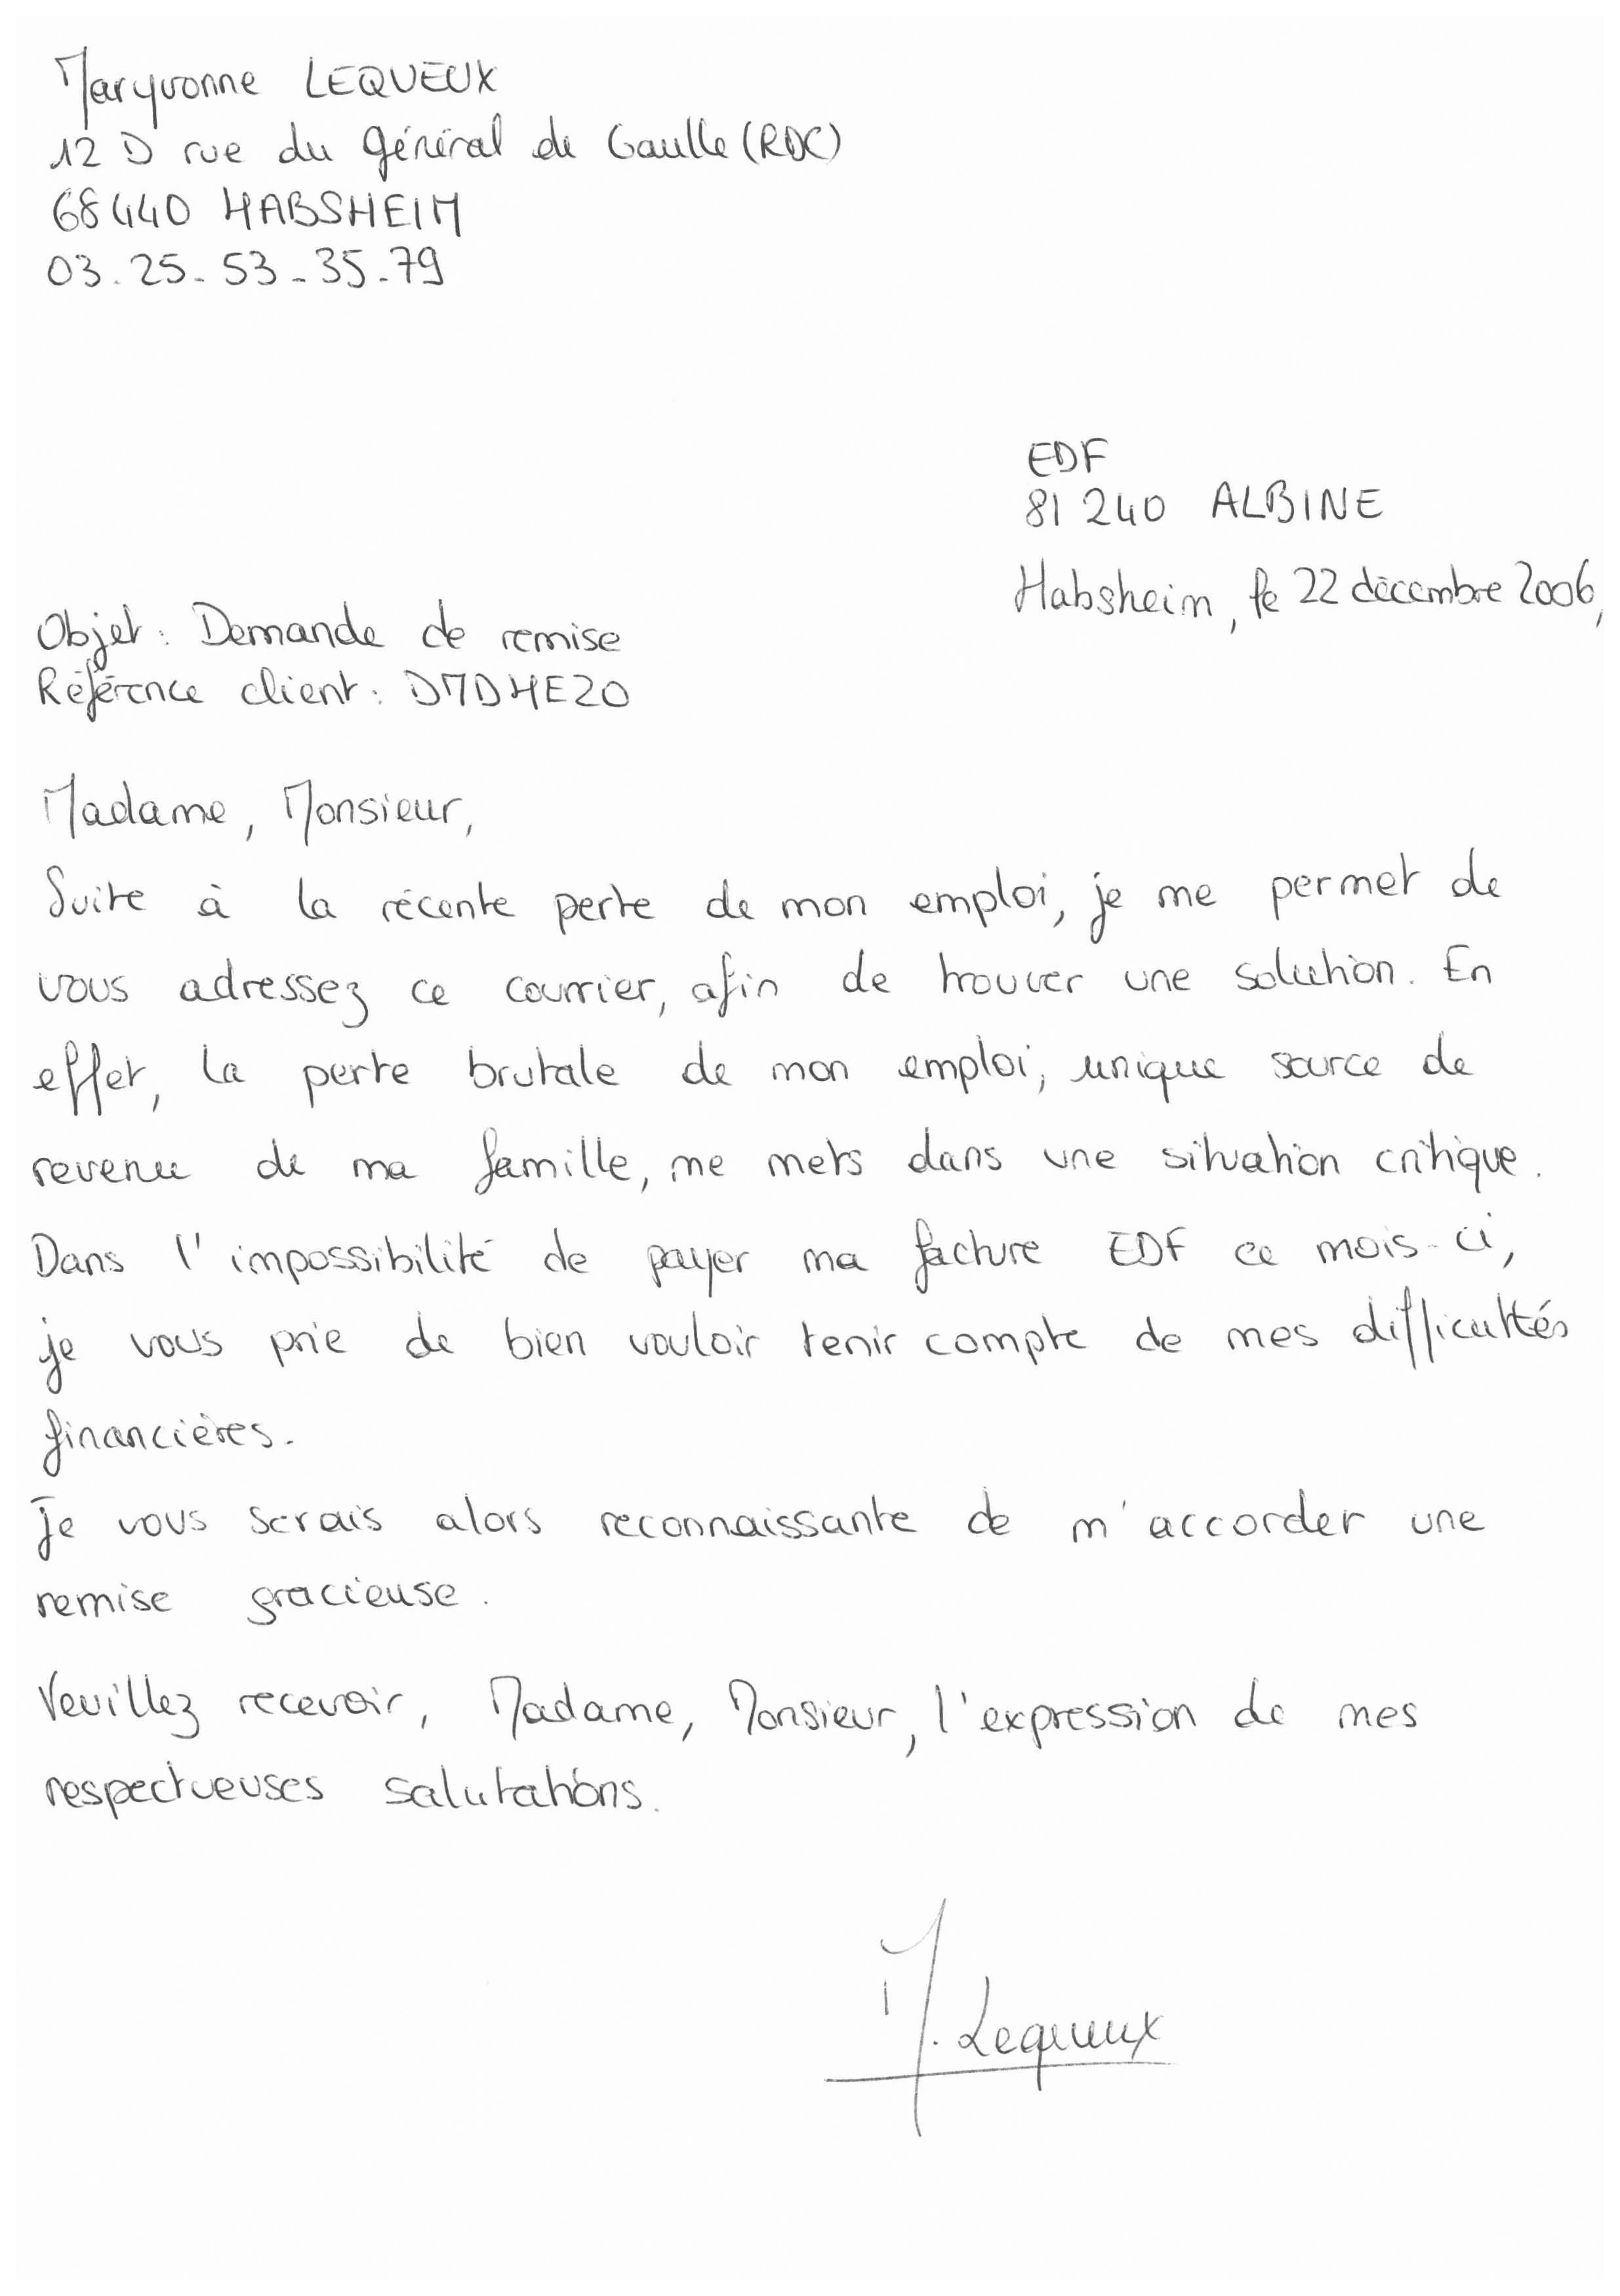 Maryvonne LEQUEUX
12 D rue du général de Gaulle (RDC)
68440 HABSHEIM
03.25-53-35-79
EDF
81240 ALBINE
Habsheim, le 22 décembre 2006,
Objet : Demande de remise
Référence client : DMDHE20
Madame, Monsieur,
Suite à la récente perte de mon emploi, je me permet de
vous adressez ce courrier, afin de trouver une solution. En
effet, la perte brutale de mon emploi, unique source de
revenu de ma famille, me mets dans une situation critique.
Dans l'impossibilité de payer ma facture EDF ce mois-ci,
je vous prie de bien vouloir tenir compte de mes difficultés
financières.
Je vous serais alors reconnaissante de m'accorder une
remise gracieuse.
Veuillez recevoir, Madame, Monsieur, l'expression de mes
respectueuses salutations.
M. Lequeux